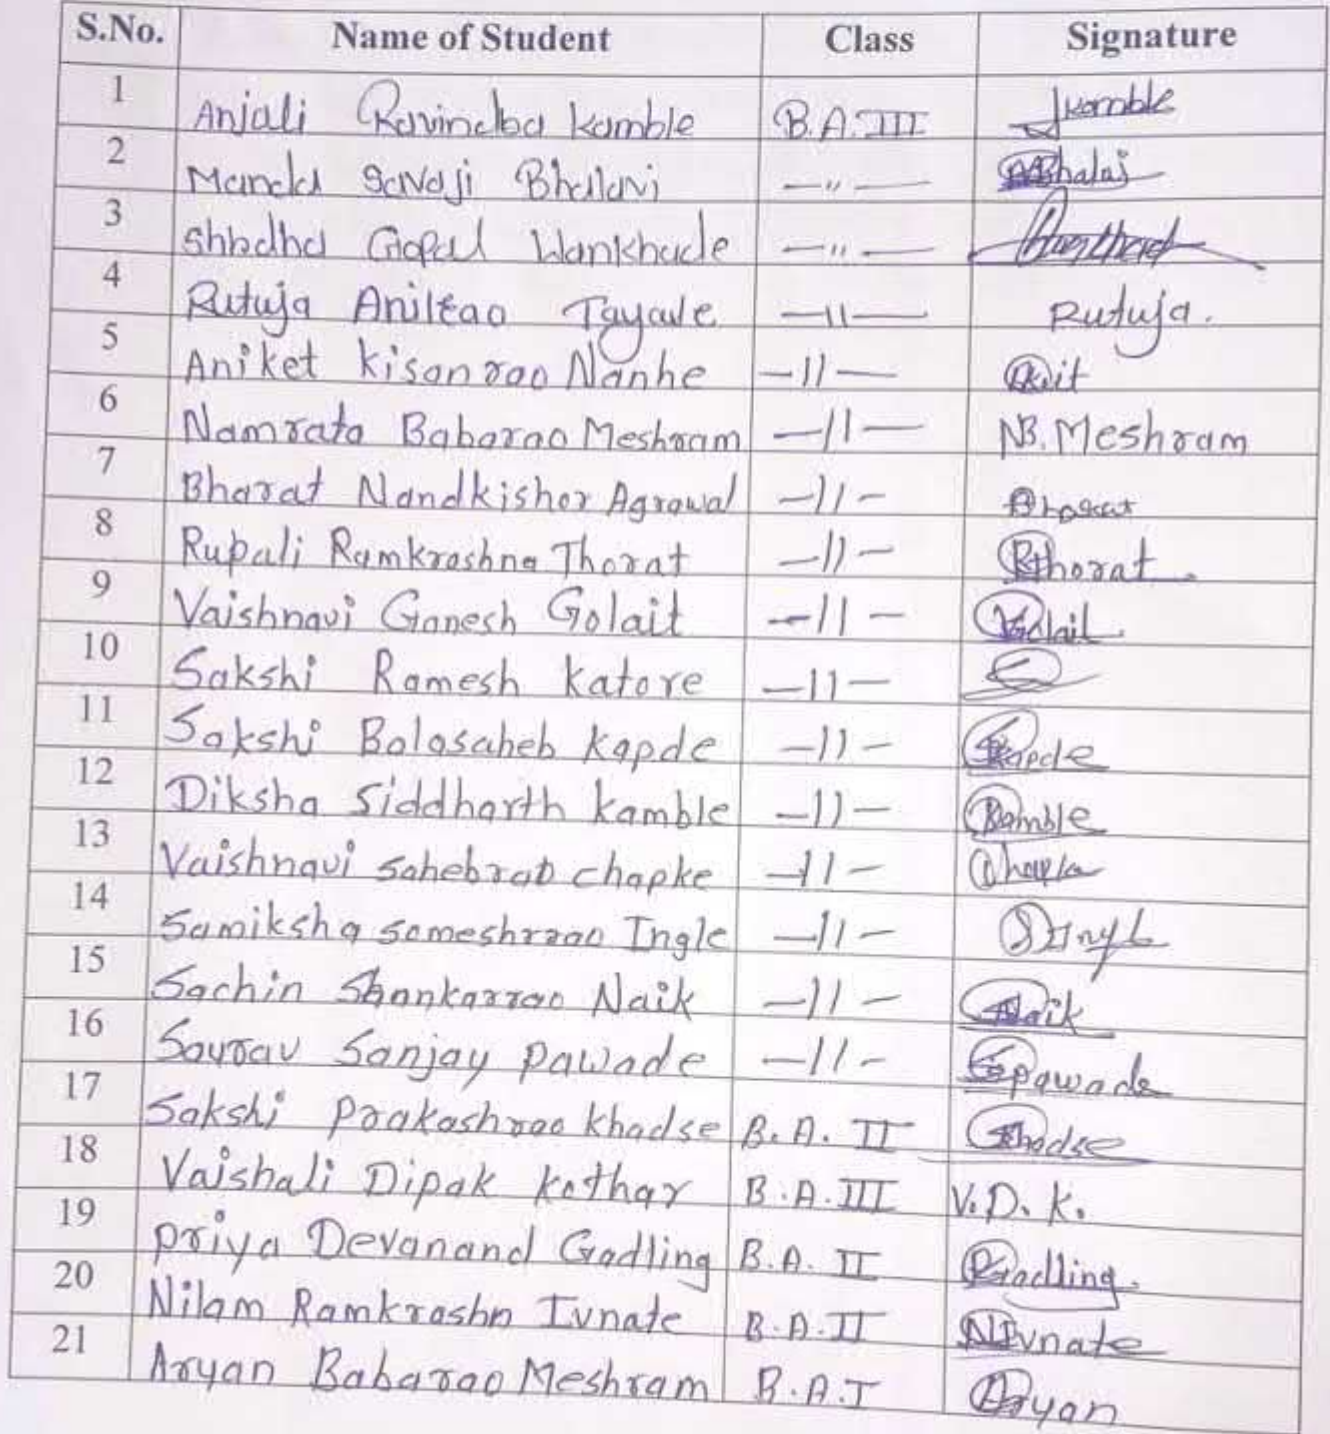 S.No. Name of Student Class Signature
1 Anjali Ravindra Kamble B.A.III Jkamble
2 Manda Savaji Bhalavi —"— Bhalaj
3 Shradha Gopal Wankhade —"—
4 Rutuja Anilrao Tayade —"— Rutuja.
5 Aniket Kisanrao Nanhe —11—
6 Namrata Babarao Meshram —11— NB.Meshram
7 Bharat Nandkishor Agrawal —11— Bharat
8 Rupali Ramkrashna Thorat —11— RThorat.
9 Vaishnavi Ganesh Golait —11— VGolait.
10 Sakshi Ramesh Katore —11—
11 Sakshi Balasaheb Kapde —11— Kapde
12 Diksha Siddharth Kamble —11— Kamble
13 Vaishnavi Sahebrao Chapke —11—
14 Samiksha Someshrrao Ingle —11—
15 Sachin Shankarrao Naik —11— Naik
16 Saurav Sanjay Pawade —11— Spawade
17 Sakshi Prakashrao Khadse B.A. II Khadse
18 Vaishali Dipak Kothar B.A.III V.D.K.
19 Priya Devanand Gadling B.A. II PGadling.
20 Nilam Ramkrashn Ivnate B.A.II NIvnate
21 Aryan Babarao Meshram B.A.I Aryan